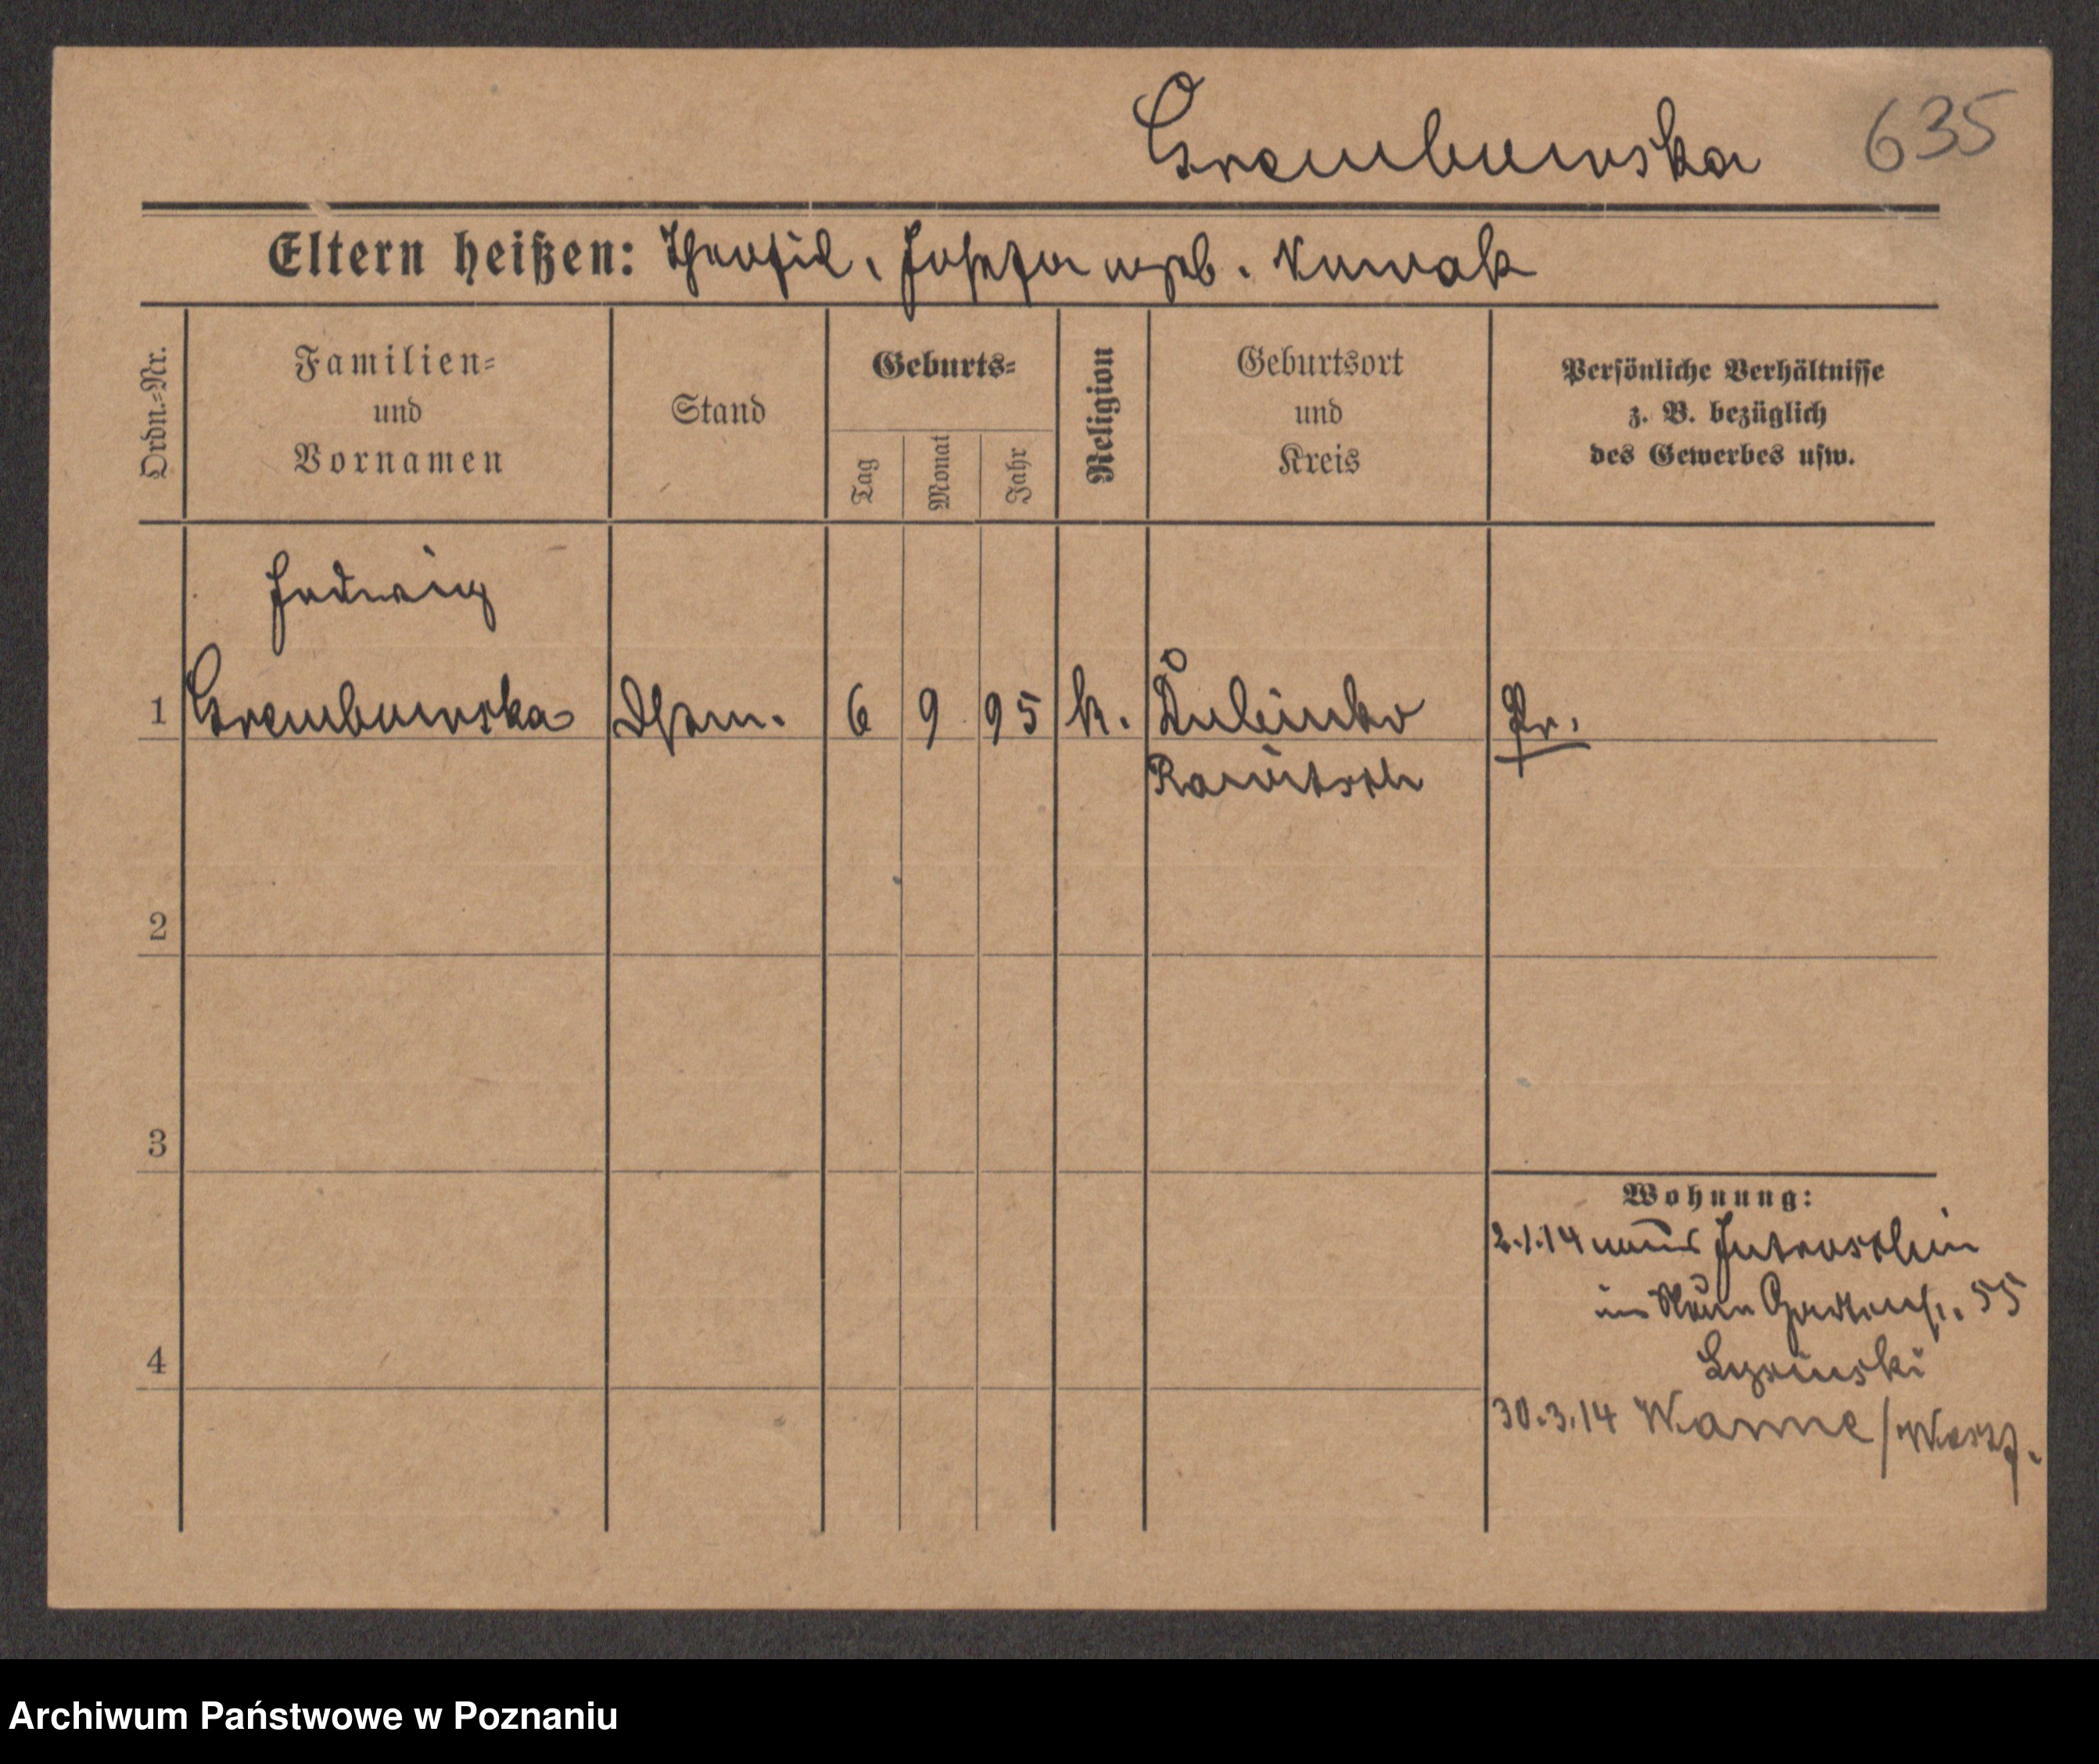 Grembowska 635
Eltern heißen: Theofil, Josefa geb. Nowak
Ordn.-Nr.
Familien-
und
Vornamen
Stand
Geburts-
Tag
Monat
Jahr
Religion
Geburtsort
und
Kreis
Persönliche Verhältnisse
z. B. bezüglich
des Gewerbes usw.
Hedwig
1 Grembowska 6 9 95 k. Dubinko Pr.
Rawitsch
2
3
Wohnung:
2.1.14 Jutroschin
Gartenstr. 55
4
30.3.14 Wanne / Westf.
Archiwum Państwowe w Poznaniu